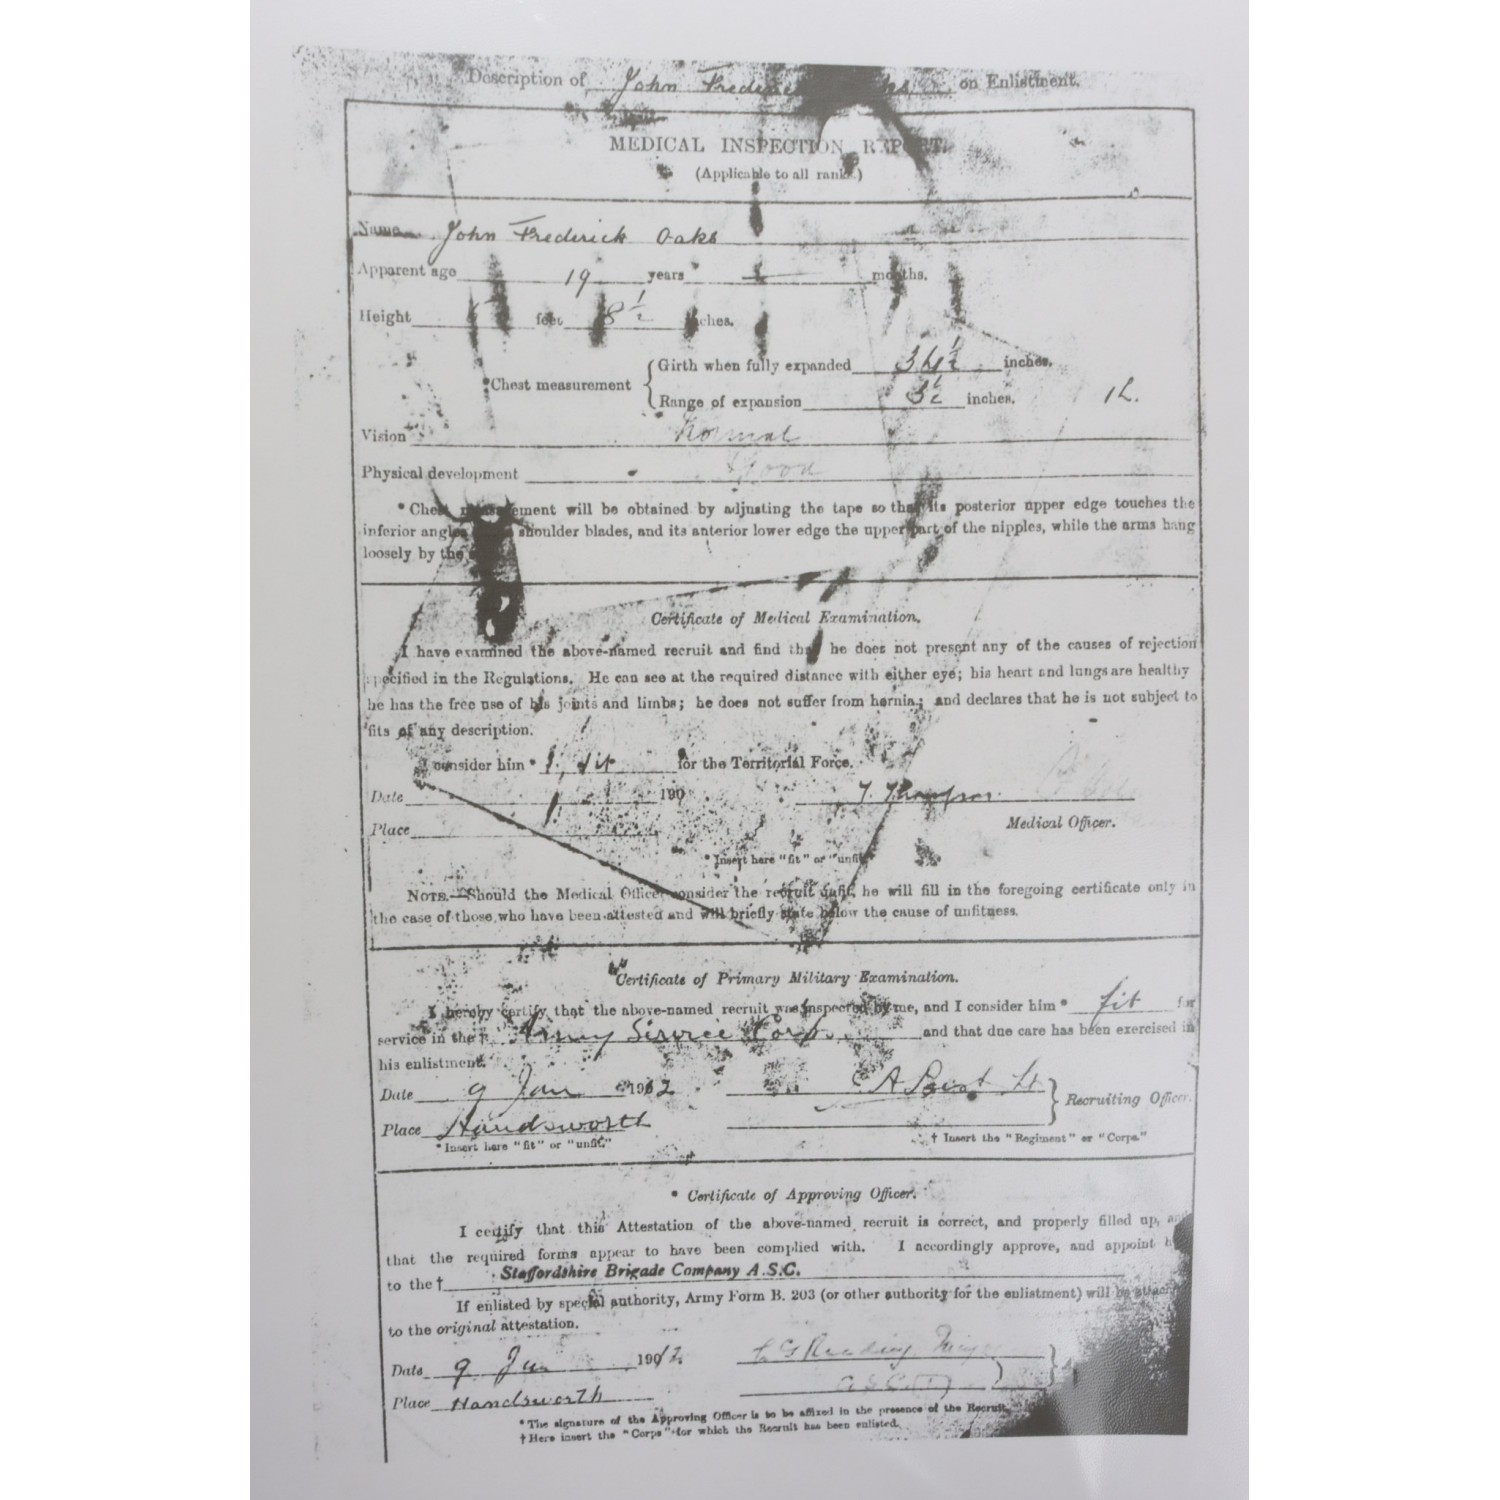 Description of John Frederick on Enlistment.
MEDICAL INSPECTION REPORT.
(Applicable to all ranks.)
Name John Frederick Oaks
Apparent age 19 years months.
Height feet 8½ inches.
*Chest measurement
Girth when fully expanded 34½ inches.
Range of expansion 3½ inches.
Vision Normal
Physical development Good
*Chest measurement will be obtained by adjusting the tape so that its posterior upper edge touches the
inferior angles shoulder blades, and its anterior lower edge the upper part of the nipples, while the arms hang
loosely by the
Certificate of Medical Examination.
I have examined the above-named recruit and find that he does not present any of the causes of rejection
specified in the Regulations. He can see at the required distance with either eye; his heart and lungs are healthy
he has the free use of his joints and limbs; he does not suffer from hernia; and declares that he is not subject to
fits of any description.
I consider him * fit for the Territorial Force.
Date 190
Place
Medical Officer.
*Insert here "fit" or "unfit"
NOTE.—Should the Medical Officer consider the recruit unfit, he will fill in the foregoing certificate only in
the case of those who have been attested and will briefly state below the cause of unfitness.
Certificate of Primary Military Examination.
I hereby certify that the above-named recruit was inspected by me, and I consider him * fit for
service in the † Army Service Corps and that due care has been exercised in
his enlistment.
Date 9 Jan 1912
Recruiting Officer.
Place Handsworth
*Insert here "fit" or "unfit."
† Insert the "Regiment" or "Corps."
* Certificate of Approving Officer.
I certify that this Attestation of the above-named recruit is correct, and properly filled up, and
that the required forms appear to have been complied with. I accordingly approve, and appoint
to the † Staffordshire Brigade Company A.S.C.
If enlisted by special authority, Army Form B. 203 (or other authority for the enlistment) will be
to the original attestation.
Date 9 Jan 1912 Reading
Place Handsworth
*The signature of the Approving Officer is to be affixed in the presence of the Recruit.
†Here insert the "Corps" for which the Recruit has been enlisted.